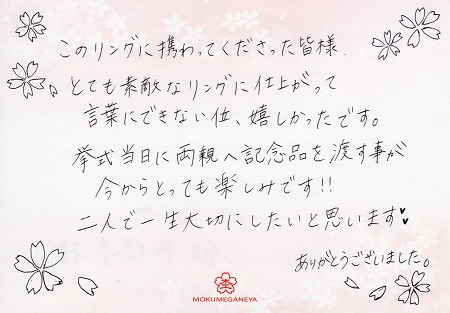 このリングに携わってくださった皆様
とても素敵なリングに仕上がって
言葉にできない位、嬉しかったです。
挙式当日に両親へ記念品を渡す事が
今からとっても楽しみです!!
二人で一生大切にしたいと思います♥♥
ありがとうございました。
MOKUMEGANEYA